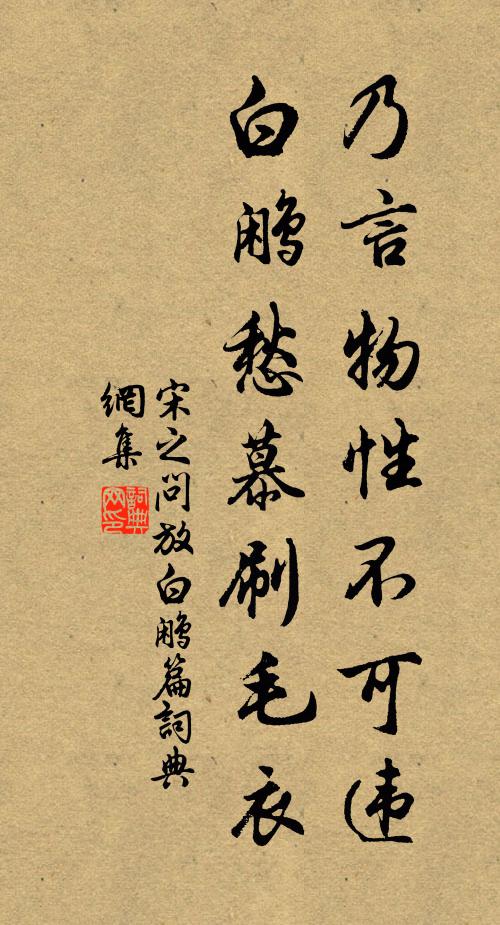 乃言物性不可违
白鹇愁慕刷毛衣
宋之问放白鹇篇詞典
網集
詞典
网印